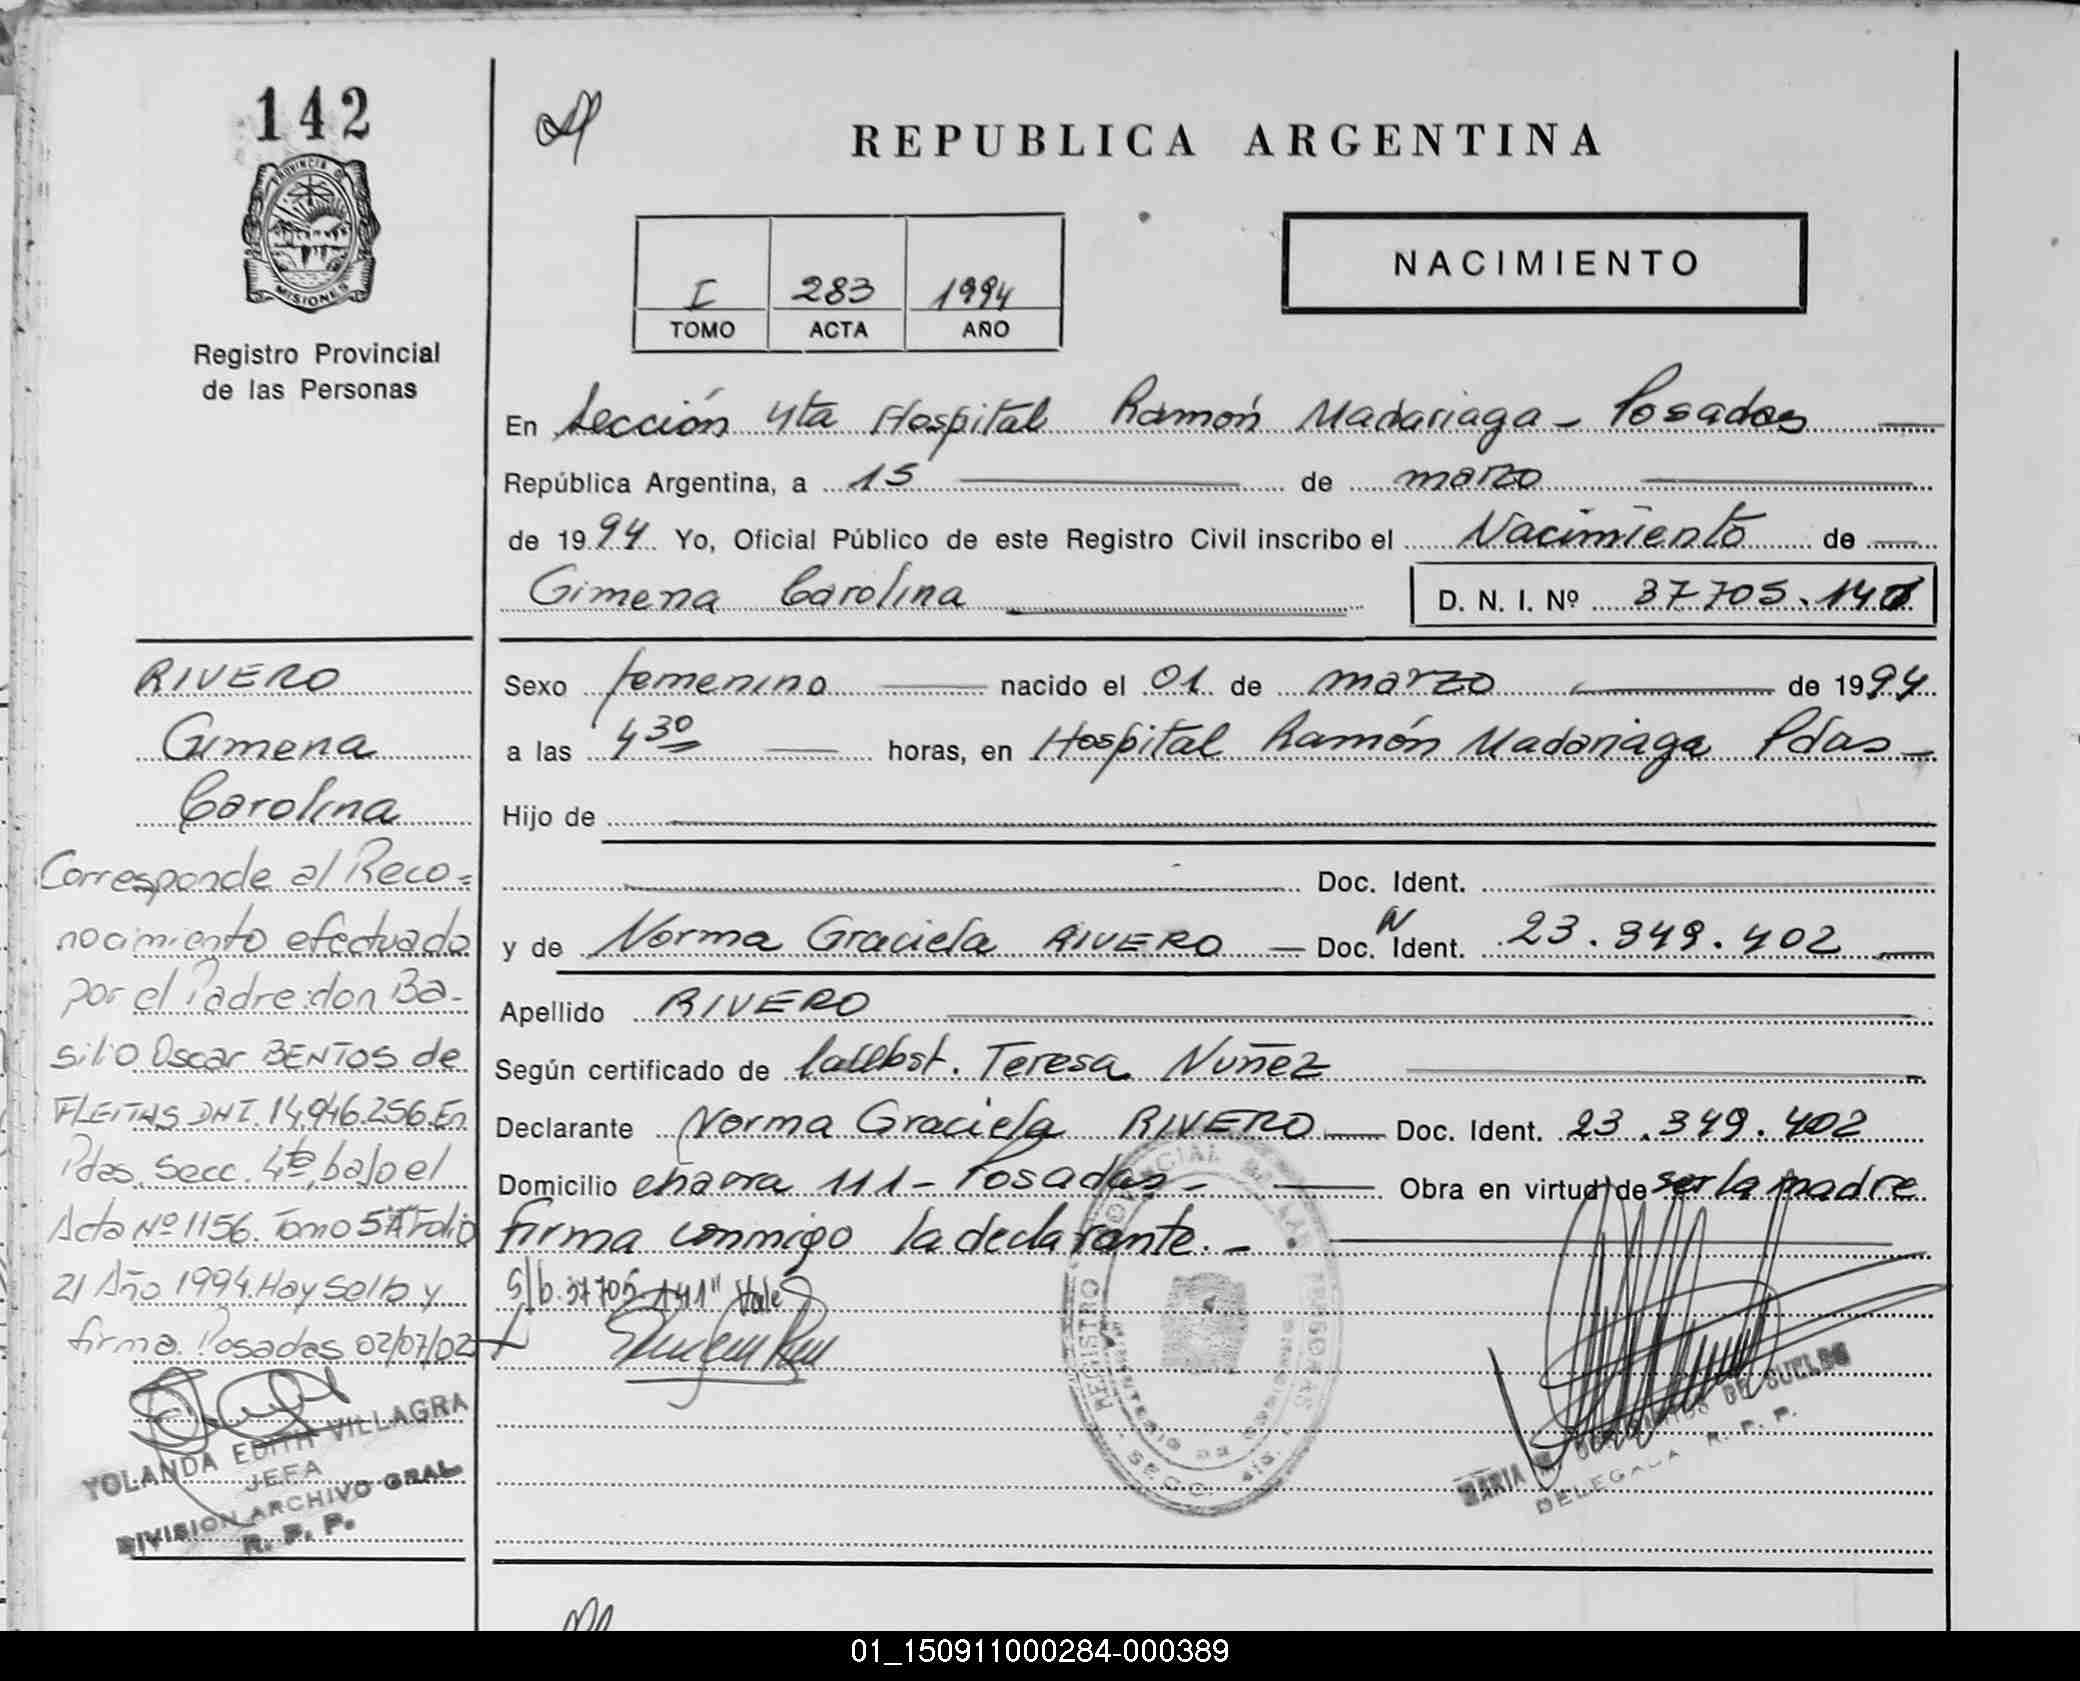 142
REPUBLICA ARGENTINA
PROVINCIA DE
MISIONES
Registro Provincial
de las Personas
I 283 1994
TOMO ACTA AÑO
NACIMIENTO
En Sección 4ta Hospital Ramón Madariaga - Posadas
República Argentina, a 15 de marzo
de 1994 Yo, Oficial Público de este Registro Civil inscribo el Nacimiento de
Gimena Carolina D. N. I. Nº 37705.141
Sexo femenino nacido el 01 de marzo de 1994
a las 4 30 horas, en Hospital Ramón Madariaga Pdas -
Hijo de
Doc. Ident.
y de Norma Graciela RIVERO - Doc. N Ident. 23.349.402
Apellido RIVERO
Según certificado de Teresa Nuñez
Declarante Norma Graciela RIVERO - Doc. Ident. 23.349.402
Domicilio chacra 111 - Posadas - Obra en virtud de ser la madre
firma conmigo la declarante. -
S/b. 37705 141" Vale
RIVERO
Gimena
Carolina
Corresponde al Reco=
nocimiento efectuado
por el Padre: don Ba-
silio Oscar BENTOS de
FLEITAS DNI. 14.946.256. En
Pdas. Secc. 4ta, bajo el
Acta Nº 1156. Tomo 5ºA Folio
21 Año 1994. Hay Sello y
firma. Posadas 02/07/02
YOLANDA EDITH VILLAGRA
JEFA
DIVISION ARCHIVO GRAL.
R. P. P.
REGISTRO PROVINCIAL DE LAS PERSONAS
SECC. 4ta.
MARIA M. DE SUELDO
DELEGADA R. P. P.
01_150911000284-000389